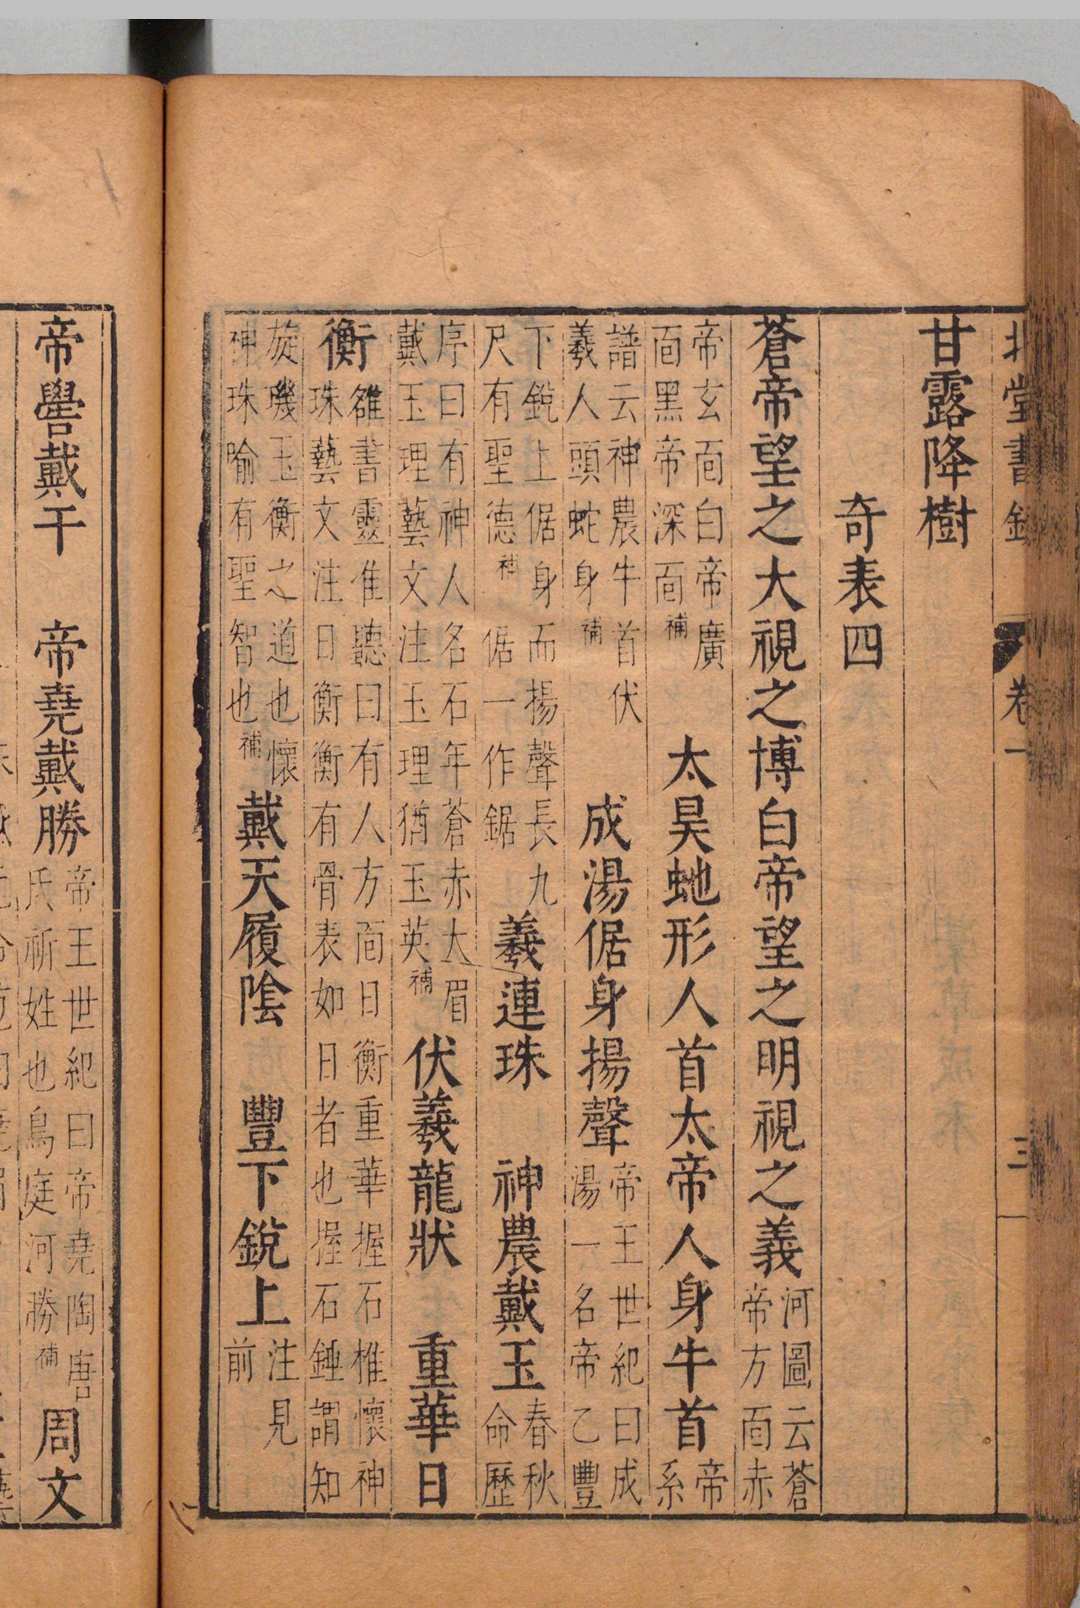 北堂書鈔 卷一 三
甘露降樹
奇表四
蒼帝望之大視之博白帝望之明視之義河圖云蒼
帝方面赤
帝玄面白帝廣
面黑帝深面補 太昊虵形人首太帝人身牛首帝
系
譜云神農牛首伏
羲人頭蛇身補 成湯倨身揚聲帝王世紀曰成
湯一名帝乙豐
下銳上倨身而揚聲長九
尺有聖德補 倨一作鋸 羲連珠 神農戴玉春秋
命歷
序曰有神人名石年蒼赤大眉
戴玉理藝文注玉理猶玉英補 伏羲龍狀 重華日
衡雒書靈准聽曰有人方面日衡重華握石椎懷神
珠藝文注日衡衡有骨表如日者也握石錘謂知
旋璣玉衡之道也懷
神珠喻有聖智也補 戴天履陰 豐下銳上注見
前
帝嚳戴干 帝堯戴勝帝王世紀曰帝堯陶唐
氏祈姓也鳥庭河勝補 周文